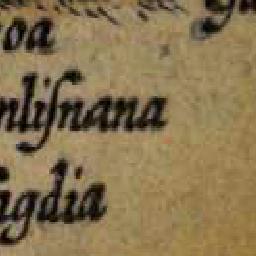 oa
nliſnana
agdia